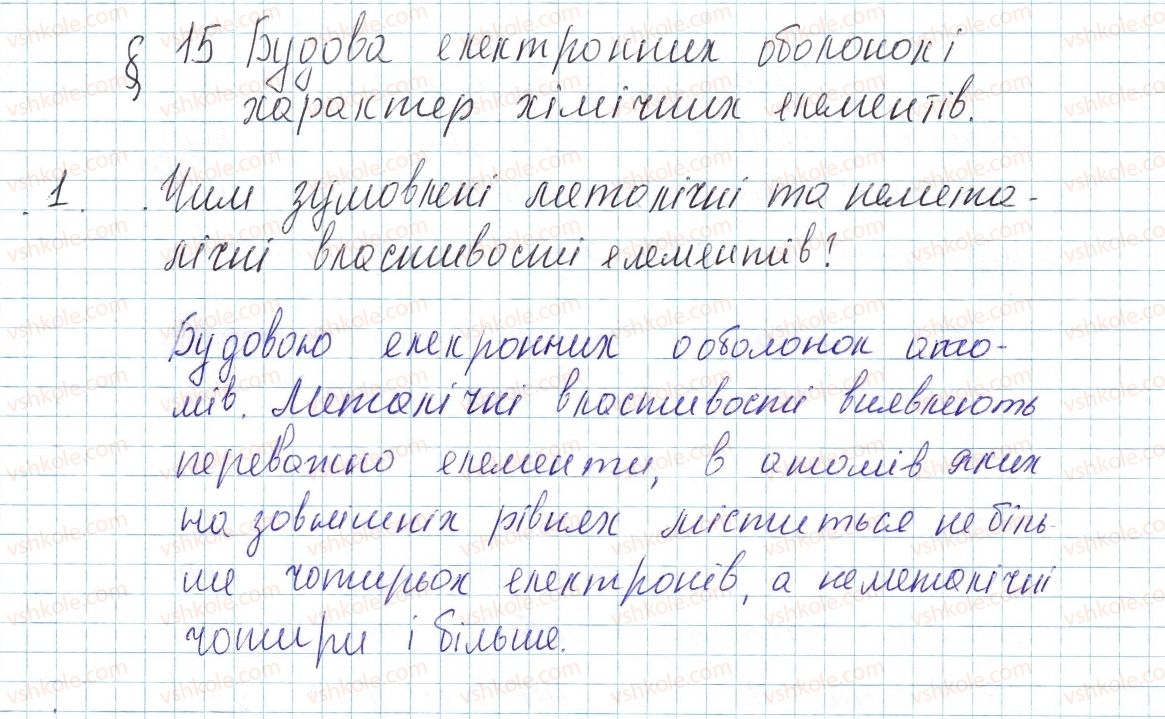 § 15 Будова електронних оболонок і
характер хімічних елементів.
1. Чим зумовлені металічні та немета-
лічні властивості елементів?
Будовою елекронних ооболонок ато-
мів. Металічні властивості виявляють
переважно елементи, в атомів яких
на зовнішніх рівнях міститься не біль-
ше чотирьох електронів, а неметалічні
чотири і більше.